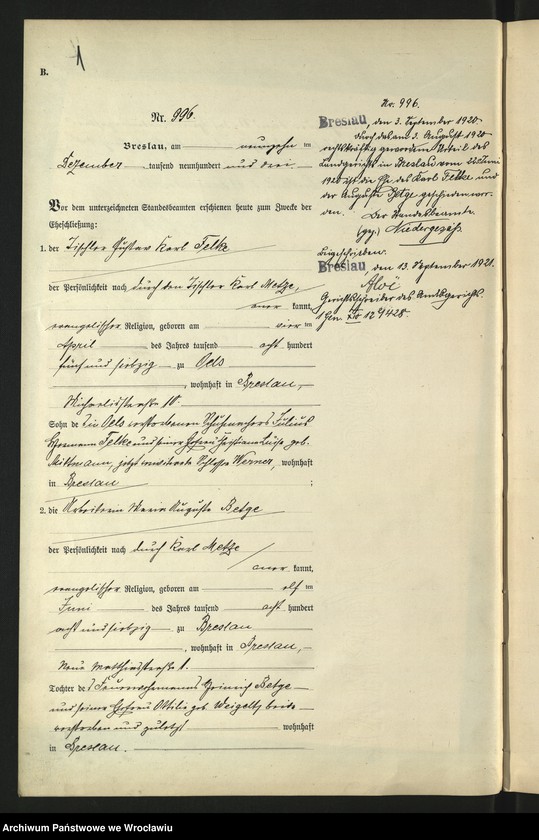 B.
1
Nr. 996.
Breslau, am neunzehn ten
Dezember tausend neunhundert und drei
Vor dem unterzeichneten Standesbeamten erschienen heute zum Zwecke der
Eheschließung:
1. der Tischler Gustav Karl Felke
der Persönlichkeit nach durch den Tischler Karl Metze,
aner kannt,
evangelischer Religion, geboren am vier ten
April des Jahres tausend acht hundert
fünf und siebzig zu Oels
, wohnhaft in Breslau,
Michaelisstraße 10.
Sohn des in Oels verstorbenen Schuhmachers Julius
Hermann Felke und seiner Ehefrau geb.
Mittmann, jetzt verwitwete Werner, wohnhaft
in Breslau ;
2. die Arbeiterin Maria Auguste Betge
der Persönlichkeit nach durch Karl Metze
aner kannt,
evangelischer Religion, geboren am elf ten
Juni des Jahres tausend acht hundert
acht und siebzig zu Breslau
, wohnhaft in Breslau,
Neue Matthiasstraße 1.
Tochter des Feuerwehrmanns Heinrich Betge
und seiner Ehefrau Ottilie geb. Weigelt, beide
verstorben und zuletzt wohnhaft
in Breslau.
Nr. 996.
Breslau, den 3. September 1920.
Durch das am 3. August 1920
rechtskräftig gewordene Urteil des
Landgerichts in Breslau vom 22. Juni
1920 ist die Ehe des Karl Felke und
der Auguste Betge geschieden wor-
den. Der Standesbeamte.
(gez.)
Beigeschrieben.
Breslau, den 13. September 1921.
Gerichtsschreiber des Amtsgerichts.
Archiwum Państwowe we Wrocławiu